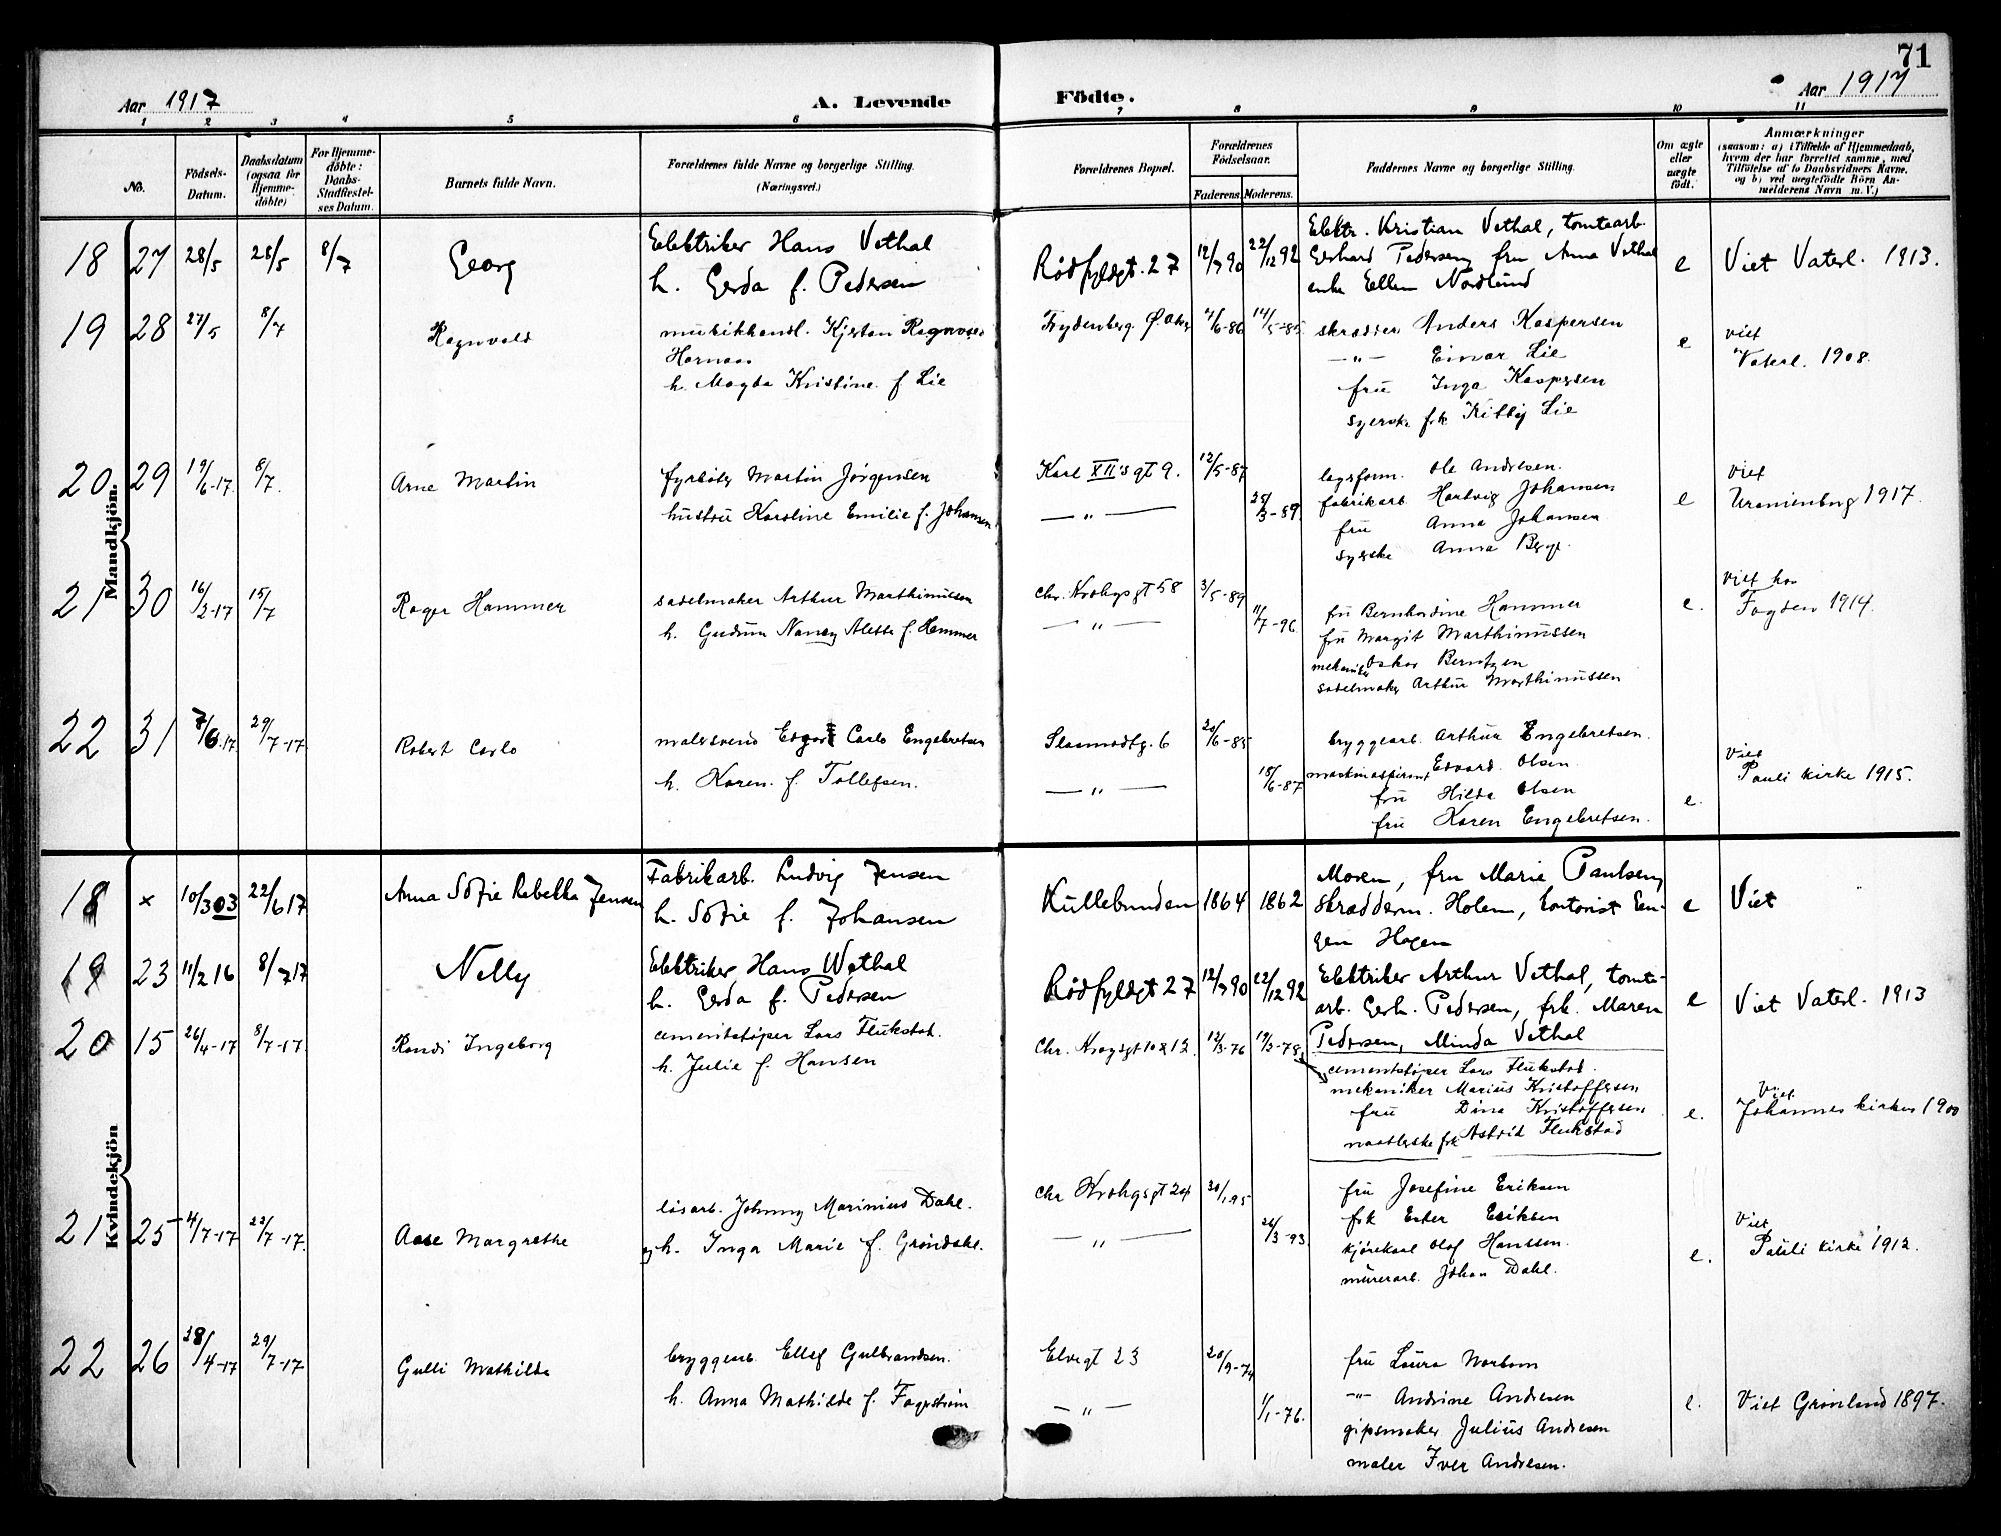 71
Aar 1917
A. Levende
Födte.
Aar 1917
1 2 3 4 5 6 7 8 9 10 11
No.
Födsels-
Datum.
Daabsdatum
(ogsaa for
Hjemme-
döbte)
For Hjemme-
döbte:
Daabs-
Stadfæstel-
ses Datum.
Barnets fulde Navn.
Forældrenes fulde Navne og borgerlige Stilling.
(Næringsvei.)
Forældrenes Bopæl.
Forældrenes
Födselsaar.
Faderens. Moderens.
Faddernes Navne og borgerlige Stilling.
Om ægte
eller
uægte
födt.
Anmærkninger
(saasom: a) i Tilfælde af Hjemmedaab,
hvem der har forrettet samme, med
Tilföielse af to Daabsvidners Navne,
og b) ved uægtefödte Börn An-
melderens Navn m. V.)
Mandkjön.
18 27 28/5 28/5 8/7 Georg
Elektriker Hans Vethal
h. Gerda f. Pedersen
Rödfyldgt. 27 12/7 90 22/12 92
Elektr. Kristian Vethal, tomtearb.
Gerhard Pedersen, fru Anna Vethal
enke Ellen Nordlund
e Viet Vaterl. 1913.
19 28 27/5 8/7 Ragnvald
musikhandl. Kjartan Ragnvald
Hornaas
h. Magda Kristine f Lie
Frydenberg Ø. Aker 7/6-86 14/5-85
skrædder Anders Kaspersen
—"— Einar Lie
fru Inga Kaspersen
syerske frk Kitty Lie
e viet
Vaterl. 1908.
20 29 19/6-17. 8/7. Arne Martin
fyrböter Martin Jörgensen
hustru Karoline Emilie f. Johansen
Karl XII's gt 9. 12/5-87
—"— 25/3-89.
lagsform. Ole Andresen.
fabrikarb. Hartvig Johansen
fru Anna Johansen
syerske Anna Berge.
e viet
Uranienborg 1917.
21 30 16/2-17 15/7 Roger Hammer
sadelmaker Arthur Marthinussen
h. Gudrun Nancy Alette f. Hammer
Chr. Krohgsgt 58 3/5-89
—"— 11/7-96.
fru Bernhardine Hammer
fru Margit Marthinussen
mekaniker Oskar Berntzen
sadelmaker Arthur Marthinussen
e. viet hos
Fogden 1914.
22 31 7/6.17 29/7-17 Robert Carlo
malersvend Edgar Carlo Engebretsen
h. Karen f. Tollefsen.
Slaamodtg. 6 20/6-85
—"— 18/6-87
bryggearb. Arthur Engebretsen.
maskinaspirant Edvard Olsen.
fru Hilda Olsen
fru Karen Engebretsen.
e. Viet
Pauli kirke 1915.
Kvindekjön
18 x 10/3 03 22/6 17 Anna Sofie Rebekka Jensen
Fabrikarb. Ludvig Jensen
h. Sofie f. Johansen
Kullebunden 1864 1862
Moren, fru Marie Paulsen,
Skrædderm. Holem, kontorist Eu-
gen Hagen
e Viet
19 23 11/2 16 8/7 17 Nelly
Elektriker Hans Wethal
h. Gerda f. Pedersen
Rödfyldgt 27 12/7 90 22/12 92
Elektriker Arthur Vethal, tomte-
arb. Gerh. Pedersen, frk. Maren
Pedersen, Minda Vethal
e Viet Vaterl. 1913
20 15 26/4-17 8/7-17. Randi Ingeborg
cementstöper Lars Flukstad.
h. Julie f. Hansen
Chr. Krogsgt 10 & 12. 12/3-76 19/3-78
cementstöper Lars Flukstad.
mekaniker Marius Kristoffersen
fru Dina Kristoffersen
naatlerske frk Astrid Flukstad
e. Viet
Johannes kirken 1900
21 25 4/7-17 22/7-17. Aase Margrethe
lösarb. Johnny Marinius Dahl.
h. Inga Marie f. Gröndahl.
Chr Krohgsgt 24 30/1.95
—"— 26/3-93.
fru Josefine Eriksen
frk Ester Eriksen
kjörekarl Olaf Hanssen.
murerarb. Johan Dahl.
e. Viet
Pauli kirke 1912.
22 26 28/4-17 29/7-17 Gulli Mathilde
bryggearb. Ellef Gulbrandsen.
h. Anna Mathilde f. Fagerström
Elvegt 23 20/9-74
—"— 1/1-76.
fru Laura Norbom
—"— Andrine Andresen
gipsmaker Julius Andresen
maler Iver Andresen.
e. Viet Grönland 1897.